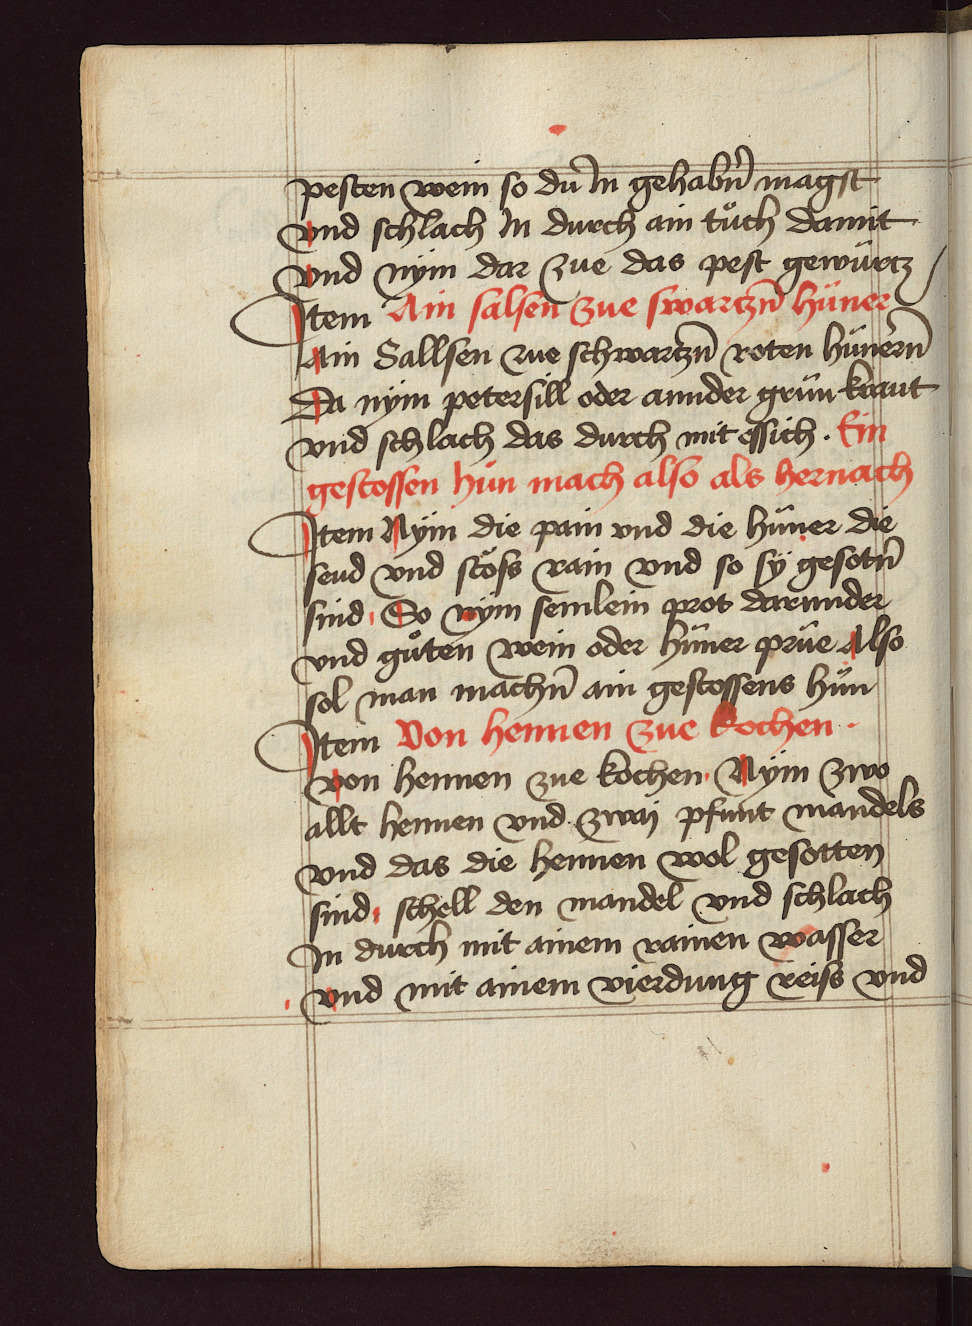 pesten wein so du In gehabn̄ magst
vnd schlach In durch ain tuͦch damit
vnd nym dar zue das pest gewürtz
Item Ain salsen zue swartzn̄ hüner
Ain Sallsen zue schwartzn̄ roten hünern̄
Da nym petersill oder annder grün kraut
vnd schlach das durch mit essich . Ein
gestossen hün mach also als hernach
Item Nym die pain vnd die hüner die
seud vnd stoͤss rain vnd so sÿ gesotn̄
sind So nym semlein prot darunder
vnd guͦten wein oder hüner prüe Also
sol man machn̄ ain gestossens hün
Item Von hennen zue kochen
von hennen zue kochen Nym zwo
allt hennen vnd zwaÿ pfunt mandels
vnd das die hennen wol gesotten
sind schell den mandel vnd schlach
In durch mit ainem rainen wasser
vnd mit ainem vierdung reiss vnd